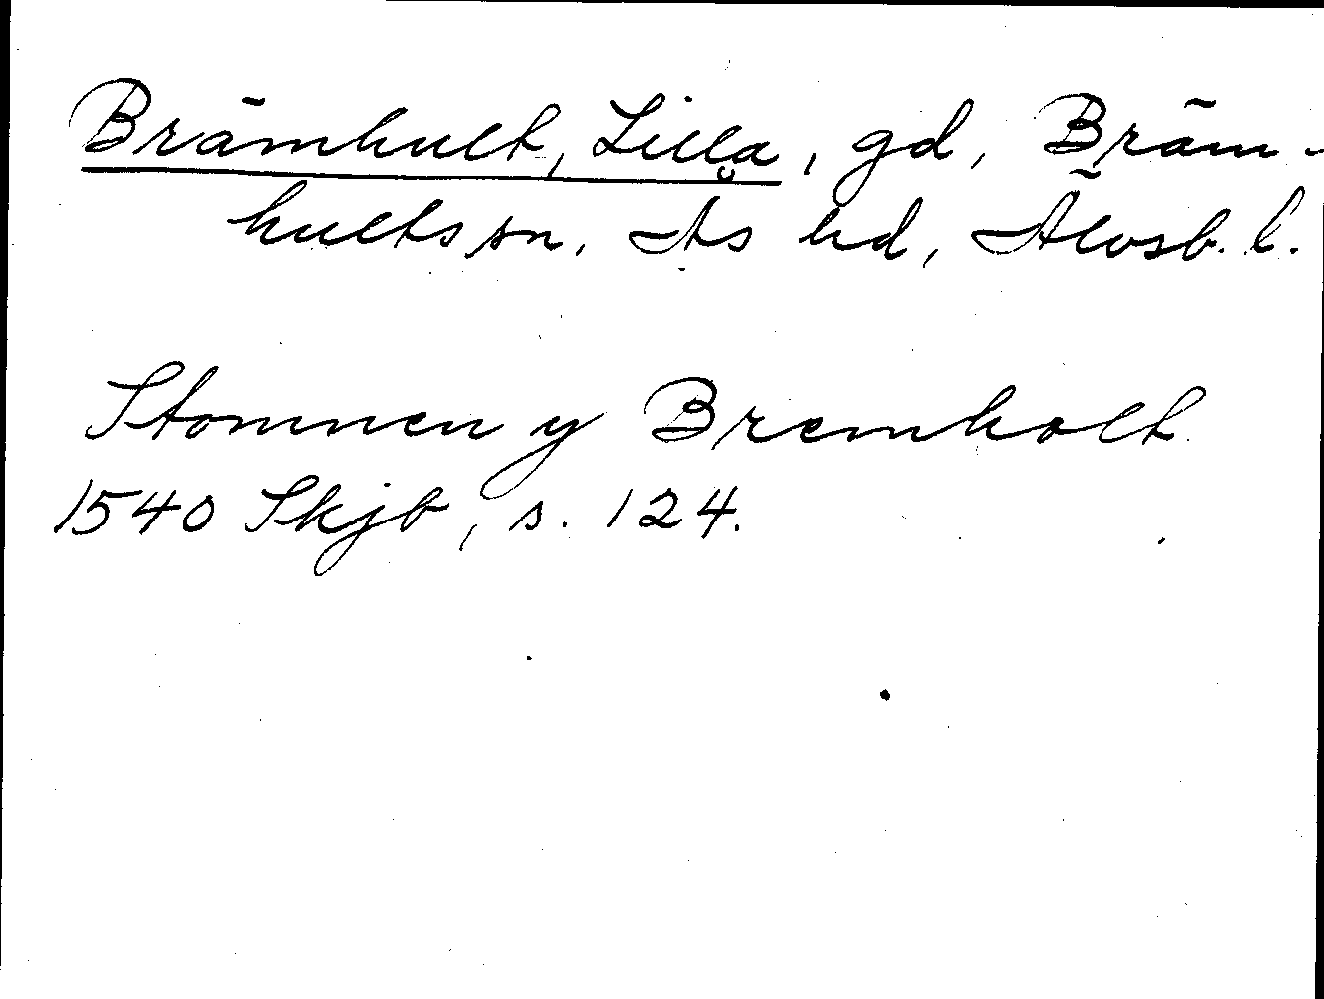 Brämhult, Lilla, gd, Bräm-
hults sn, Ås hd, Älvsb. l.
Stomnen y Bremholt
1540 Skjb, s. 124.